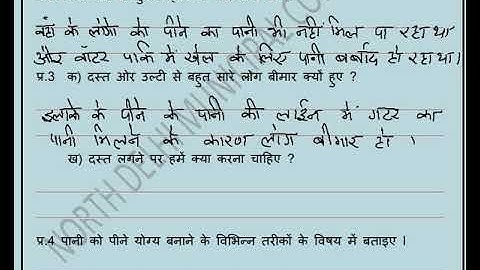 वहाँ के लोगो को पीने का पानी भी नहीं मिल पा रहा था
और वॉटर पार्क में खेल के लिए पानी बर्बाद हो रहा था।
प्र.3 क) दस्त ओर उल्टी से बहुत सारे लोग बीमार क्यों हुए ?
इलाके के पीने के पानी की लाईन में गटर का
पानी मिलने के कारण लोग बीमार हो ।
ख) दस्त लगने पर हमें क्या करना चाहिए ?
प्र.4 पानी को पीने योग्य बनाने के विभिन्न तरीकों के विषय में बताइए ।
NORTH DELHI MUNICIPAL